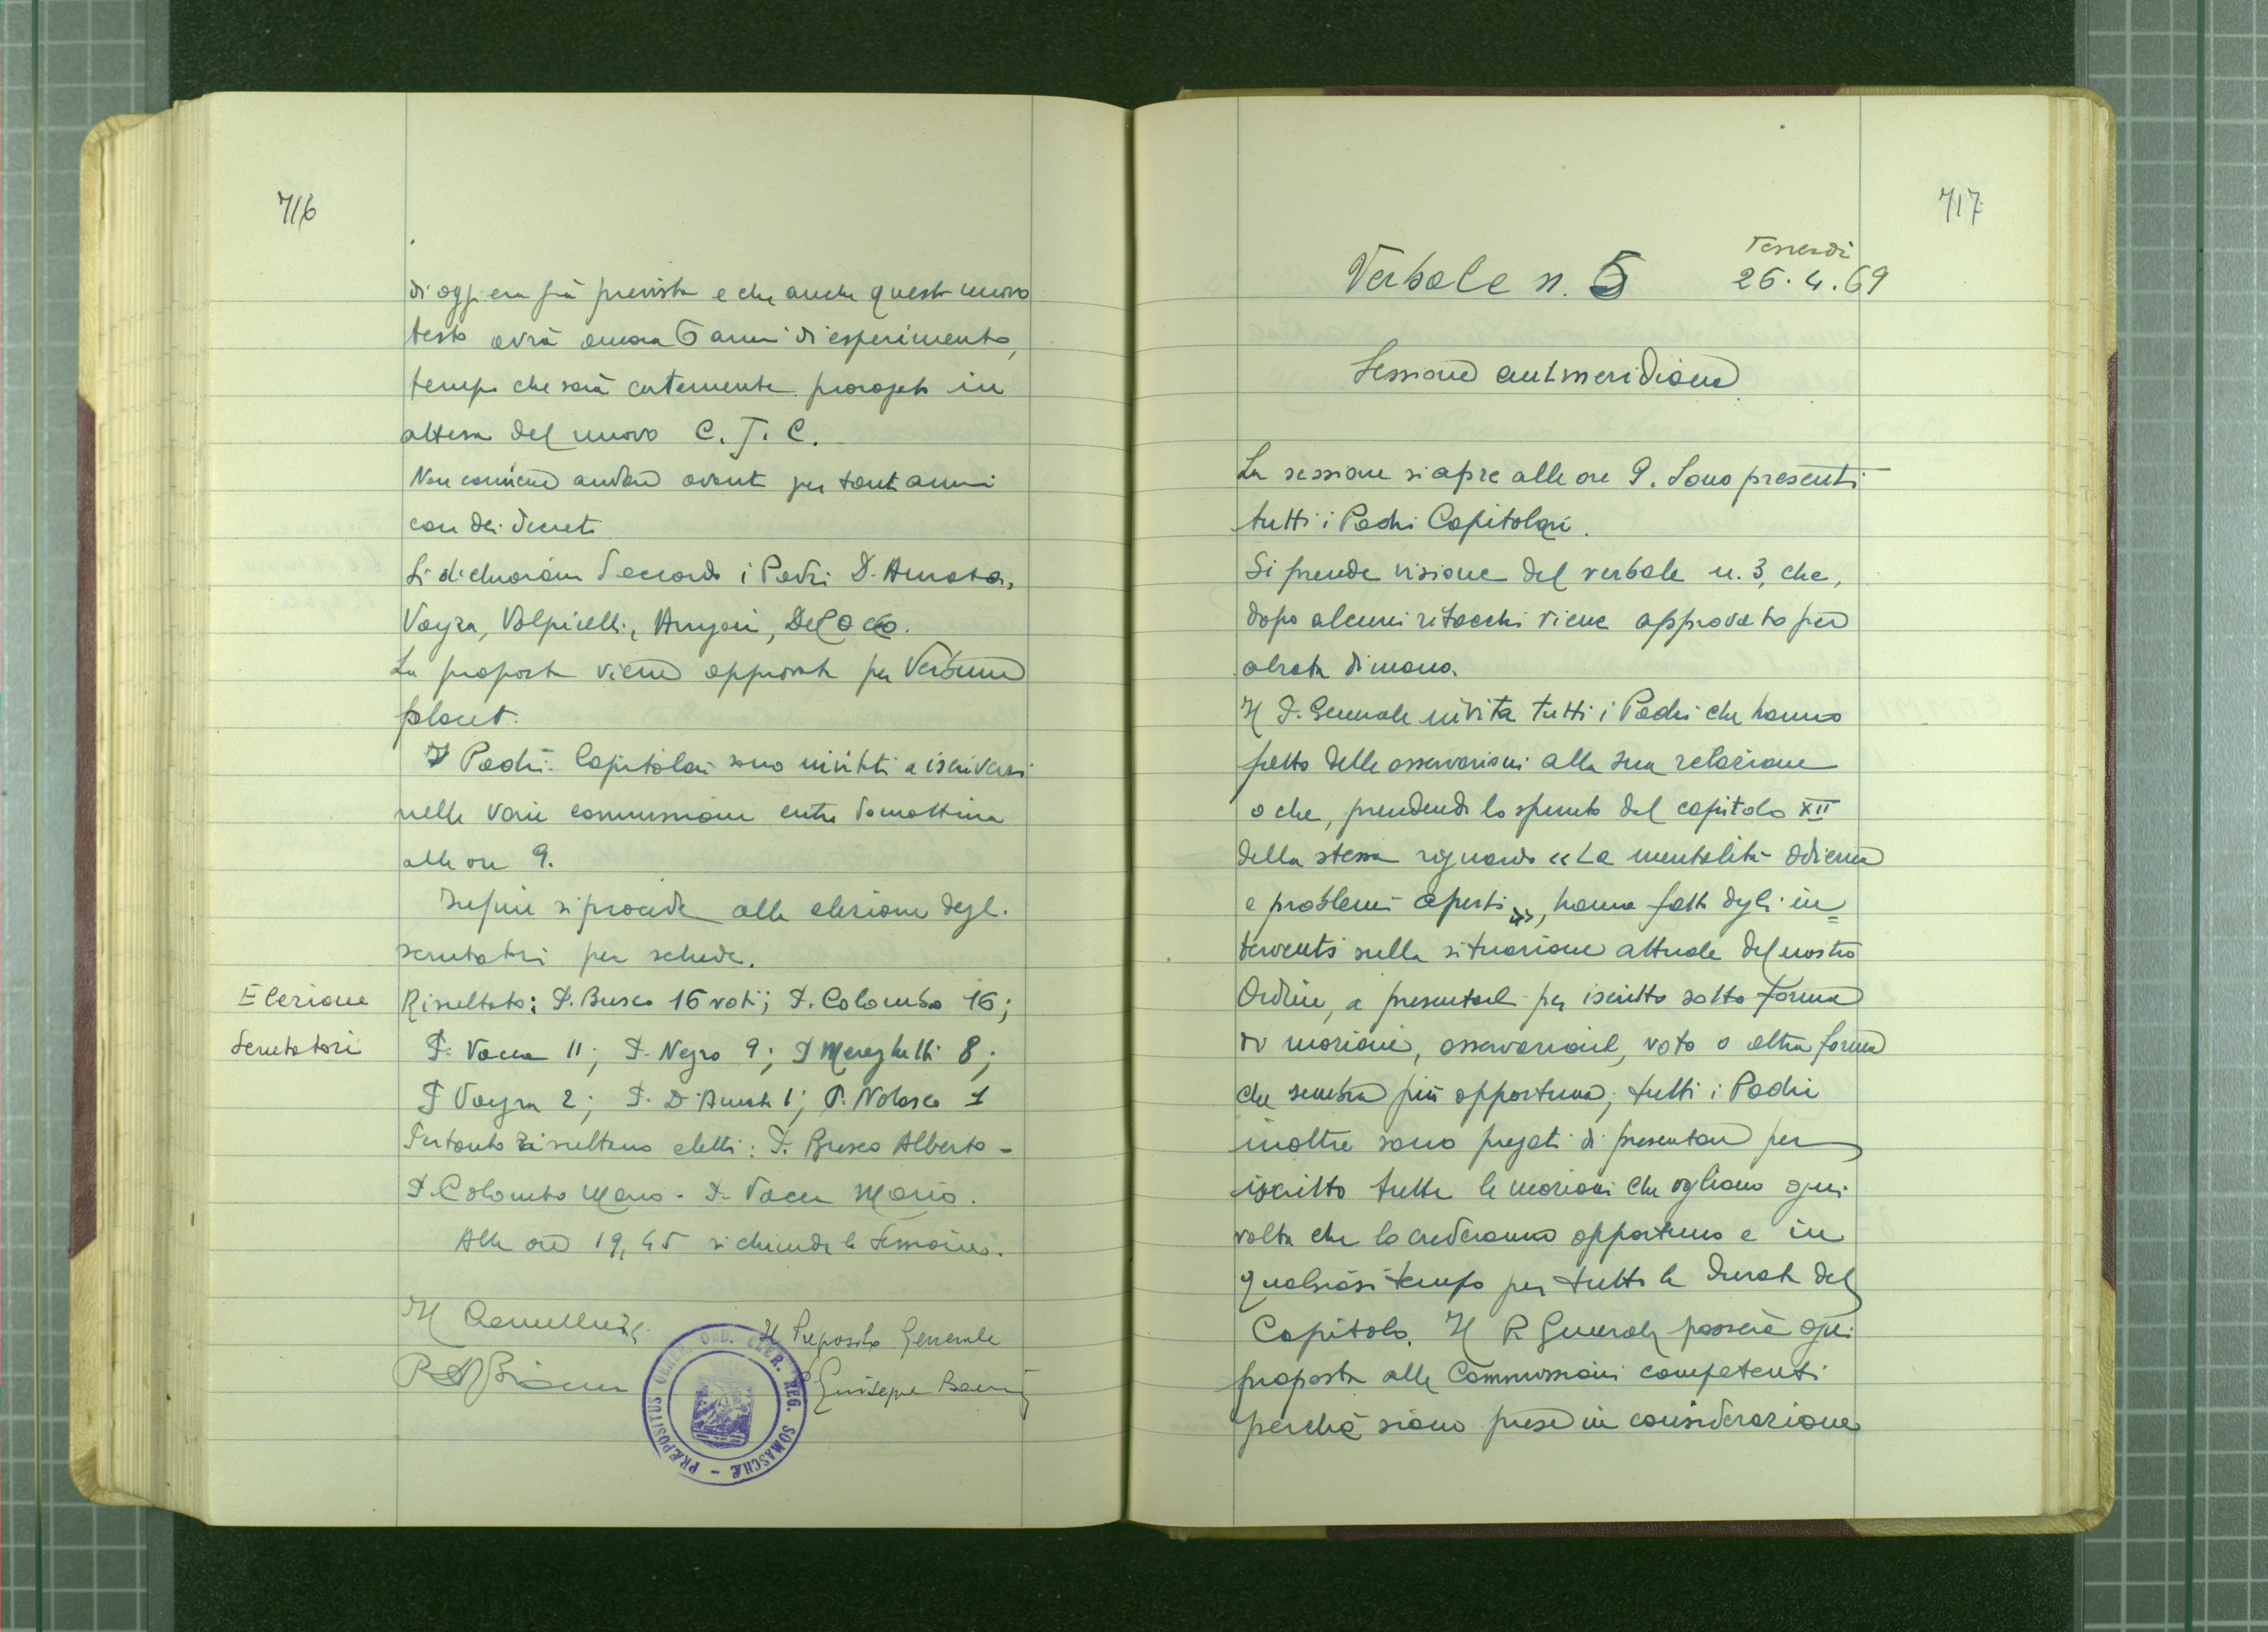 716
di oggi era già prevista e che anche questo nuovo
testo avrà ancora 6 anni di esperimento,
tempo che sarà certamente prorogato in
attesa del nuovo C. J. C.
Non conviene andare avanti per tanti anni
con dei decreti
Si dichiarano d'accordo i Padri D'Amato,
Vayra, Volpicelli, Del
La proposta viene approvata per Verbum
placet.
I Padri Capitolari sono invitti a iscriversi
nelle varie commissioni entro domattina
alle ore 9.
Infine si procede alla elezione degli
scrutatori per schede.
Elezione
Scrutatori
Risultato: P. Busco 16 voti; P. Colombo 16;
P. Vacca 11; P. Negro 9; P Mereghetti 8;
P Vayra 2; P. D'Amato 1; P. Nolasco 1
Pertanto risultano eletti: P. Busco Alberto -
P. Colombo Mario - P. Vacca Mario.
Alle ore 19,45 si chiude la sessione.
Il Cancelliere
Il Preposito Generale
P.
P Giuseppe
PRÆPOSITUS GENER. ORD. CLER. REG. SOMASCHÆ -
717
Venerdì
Verbale n. 5 26.4.69
Sessione antimeridiana
La sessione si apre alle ore 9. Sono presenti
tutti i Padri Capitolari.
Si prende visione del verbale n. 3, che,
dopo alcuni ritocchi viene approvato per
alzata di mano.
Il P. Generale invita tutti i Padri che hanno
fatto delle osservazioni alla sua relazione
o che, prendendo lo spunto dal capitolo XII
della stessa riguardo «La mentalità odierna
e problemi aperti», hanno fatto degli in=
terventi sulla situazione attuale del nostro
Ordine, a presentarle per iscritto sotto forma
di mozione, osservazioni, voto o altra forma
che sembra più opportuna; tutti i Padri
inoltre sono pregati di presentare per
iscritto tutte le mozioni che vogliono ogni
volta che lo crederanno opportuno e in
qualsiasi tempo per tutta la durata del
Capitolo. Il P. Generale passerà ogni
proposta alle Commissioni competenti
perché siano prese in considerazione